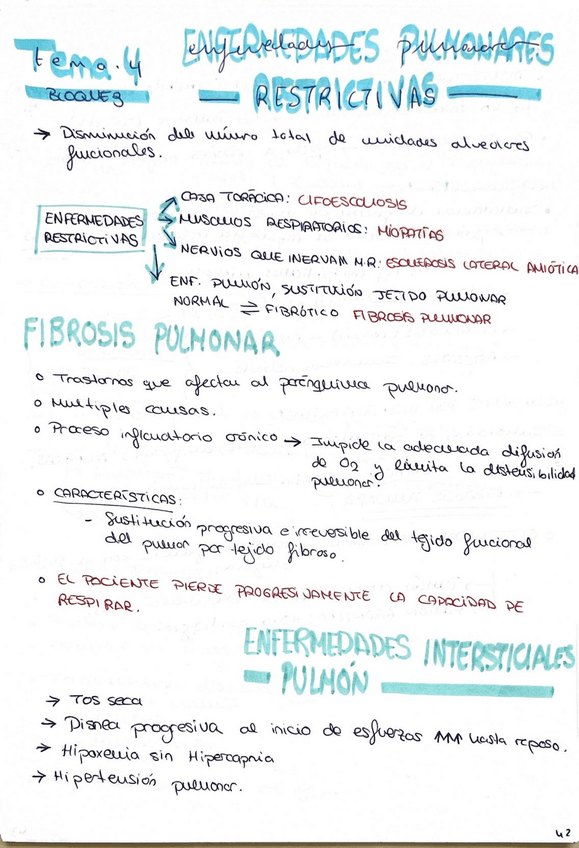 Tema.4
BLOQUE 3
ENFERMEDADES PULMONARES
enfermedades pulmonares
RESTRICTIVAS
→ Disminución del número total de unidades alveolares
funcionales.
ENFERMEDADES
RESTRICTIVAS
CAJA TORÁCICA: CIFOESCOLIOSIS
MUSCULOS RESPIRATORIOS: MIOPATÍAS
NERVIOS QUE INERVAN M.R: ESCLEROSIS LATERAL AMIÓTICA
ENF. PULMÓN, SUSTITUCIÓN TEJIDO PULMONAR
NORMAL ⇌ FIBRÓTICO FIBROSIS PULMONAR
FIBROSIS PULMONAR
o Trastornos que afectan al parénquima pulmonar.
o Multiples causas.
o Proceso inflamatorio crónico → Impide la adecuada difusión
de O2 y limita la distensibilidad
pulmonar.
o CARACTERÍSTICAS:
- Sustitución progresiva e irreversible del tejido funcional
del pulmon por tejido fibroso.
o EL PACIENTE PIERDE PROGRESIVAMENTE LA CAPACIDAD DE
RESPIRAR.
ENFERMEDADES INTERSTICIALES
PULMÓN
→ Tos seca
→ Disnea progresiva al inicio de esfuerzos hasta reposo.
→ Hipoxemia sin Hipercapnia
→ Hipertensión pulmonar.
42